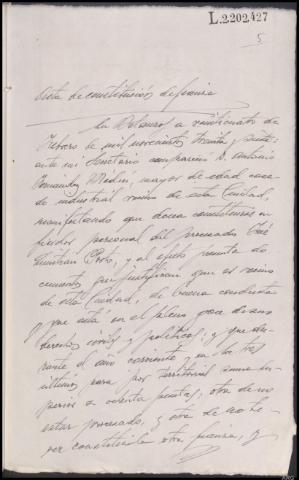 L.2.202.427
5
Acta de constitución de fianza
En Betanzos a veinticuatro de
Febrero de mil novecientos treinta y siete:
ante mi Secretario comparecio D. Antonio
mayor de edad casa
do industrial vecino de esta Ciudad,
manifestando que desea constituirse en
fiador personal del procesado José
y al efecto presenta do
cumentos que justifican que es vecino
de esta Ciudad, de buena conducta
y que está en el pleno goce de sus
derechos civiles y politicos; y que du
rante el año corriente y en los tres
ultimos paga por territorial
a ochenta pesetas; otra de no
estar procesado, y otra de no ha
ber constituido otra fianza, y